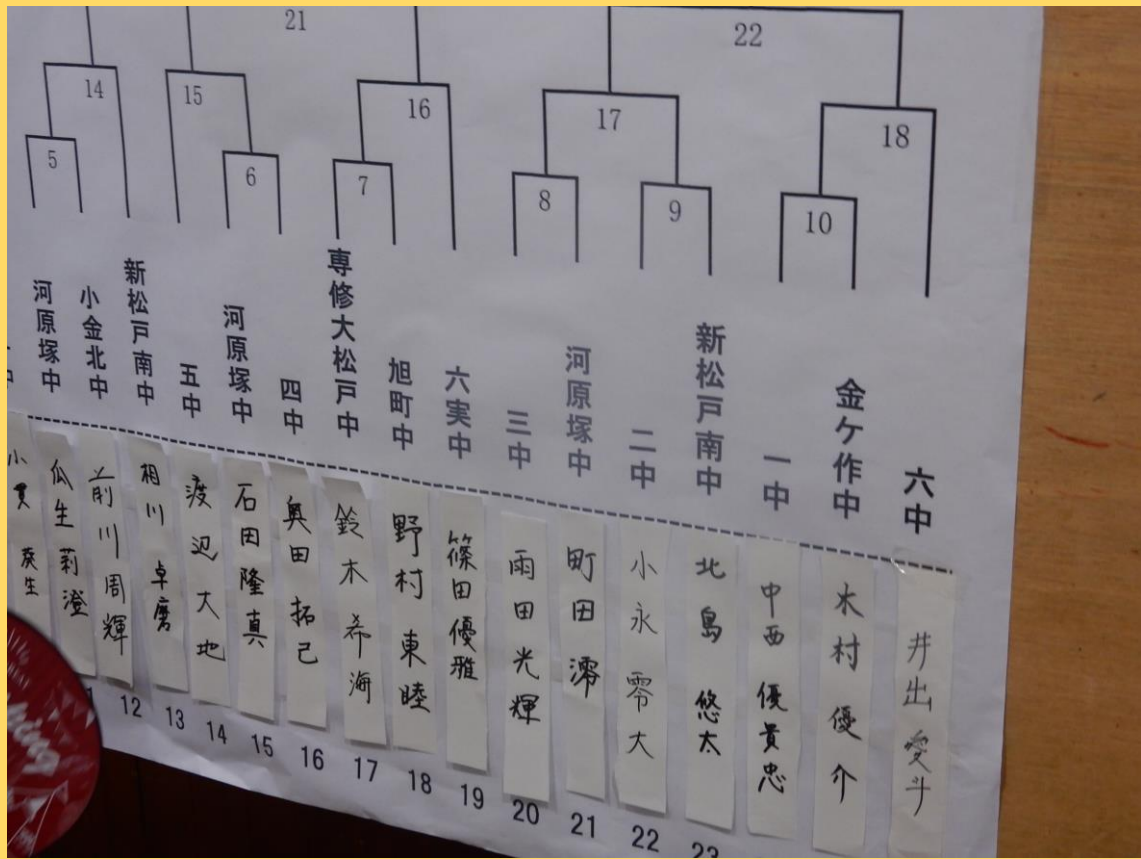 21
22
14
15
16
17
18
5
6
7
8
9
10
河原塚中
小金北中
新松戸南中
五中
河原塚中
四中
専修大松戸中
旭町中
六実中
三中
河原塚中
二中
新松戸南中
一中
金ケ作中
六中
小貫 葵生
瓜生莉澄
前川周輝
相川卓磨
渡辺大地
石田隆真
奥田拓己
鈴木希海
野村東睦
篠田優雅
雨田光輝
町田澪
小永零大
北島悠太
中西優貴忠
木村優介
井出愛斗
12
13
14
15
16
17
18
19
20
21
22
23